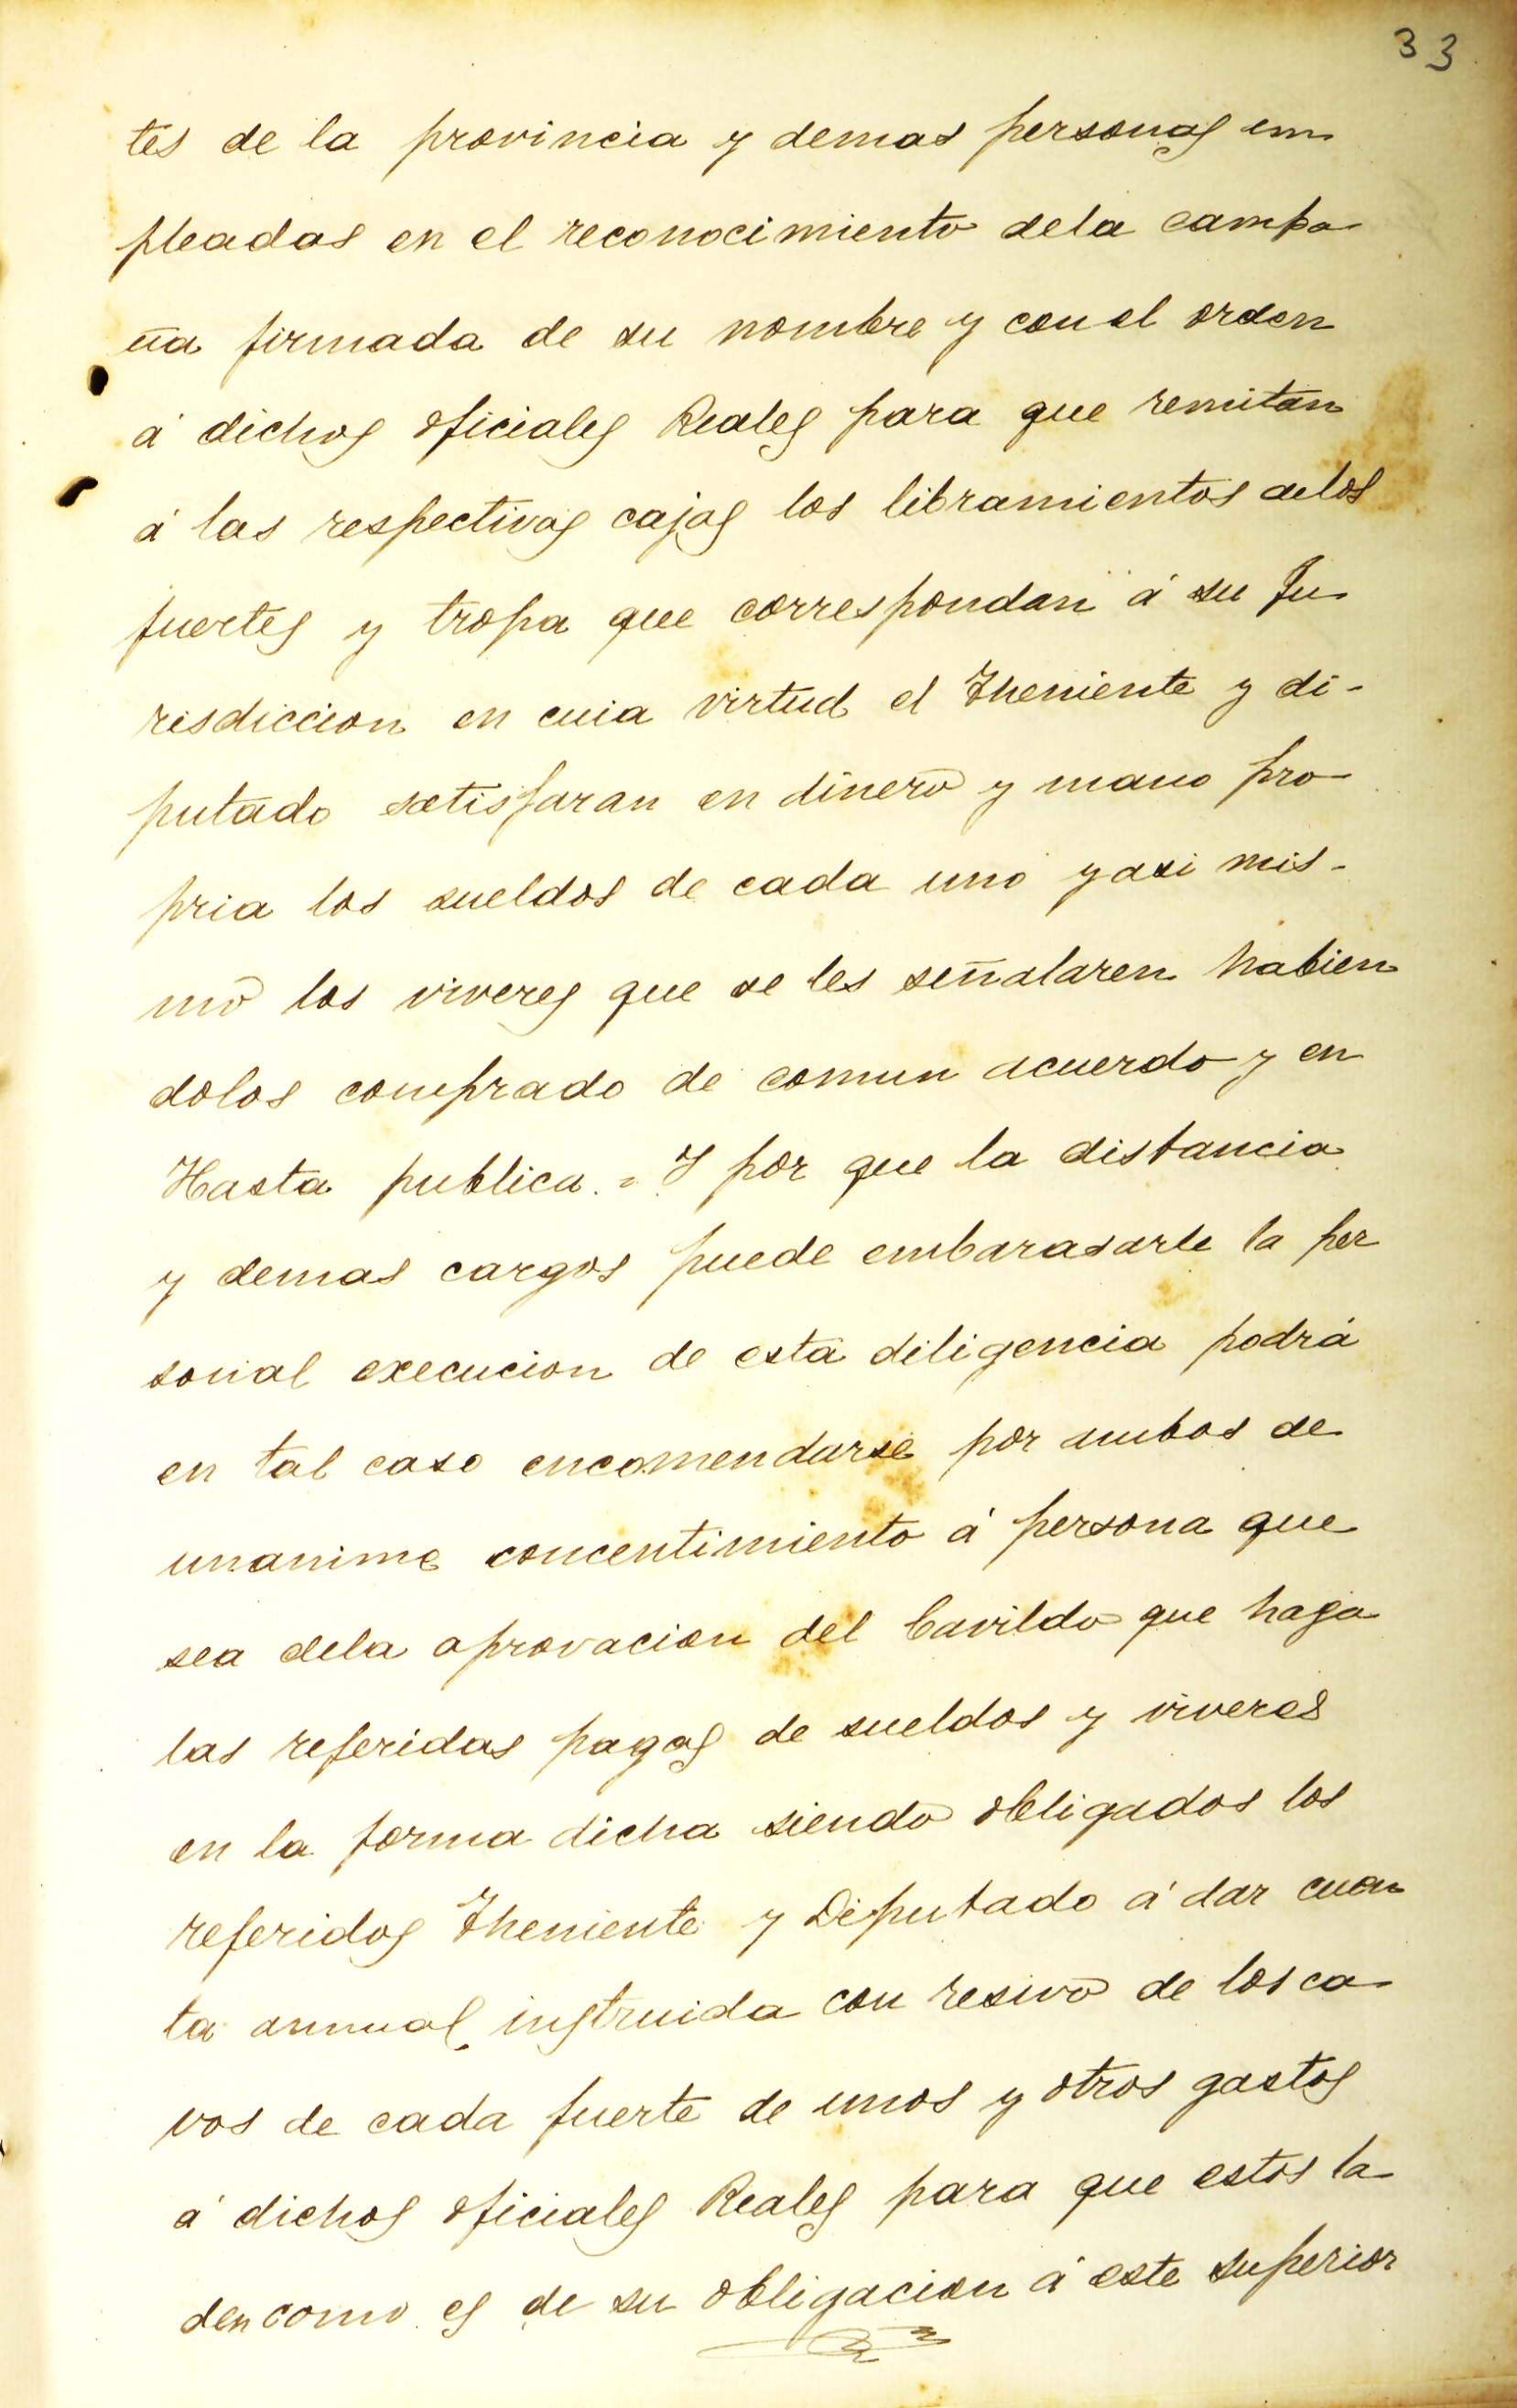 33
tes de la provincia y demas personas em
pleadas en el reconocimiento dela campa
ña firmada de su nombre y con el orden
á dichos oficiales Reales para que remitan
á las respectivas cajas los libramientos delos
fuertes y tropa que correspondan á su Ju
risdiccion en cuia virtud el Theniente y di-
putado satisfaran en dinero y mano pro
pria los sueldos de cada uno y asi mis-
mo los viveres que se les señalaren habien
dolos comprado de comun acuerdo y en
Hasta publica. = Y por que la distancia
y demas cargos puede embarasarle la per
sonal execucion de esta diligencia podrá
en tal caso encomendarse por ambos de
unanime concentimiento á persona que
sea dela aprovacion del Cavildo que haga
las referidas pagas de sueldos y viveres
en la forma dicha siendo obligados los
referidos Theniente y Diputado á dar cuen
ta annual instruida con resivo de los ca
vos de cada fuerte de unos y otros gastos
á dichos oficiales Reales para que estos la
den como es de su obligacion á este superior